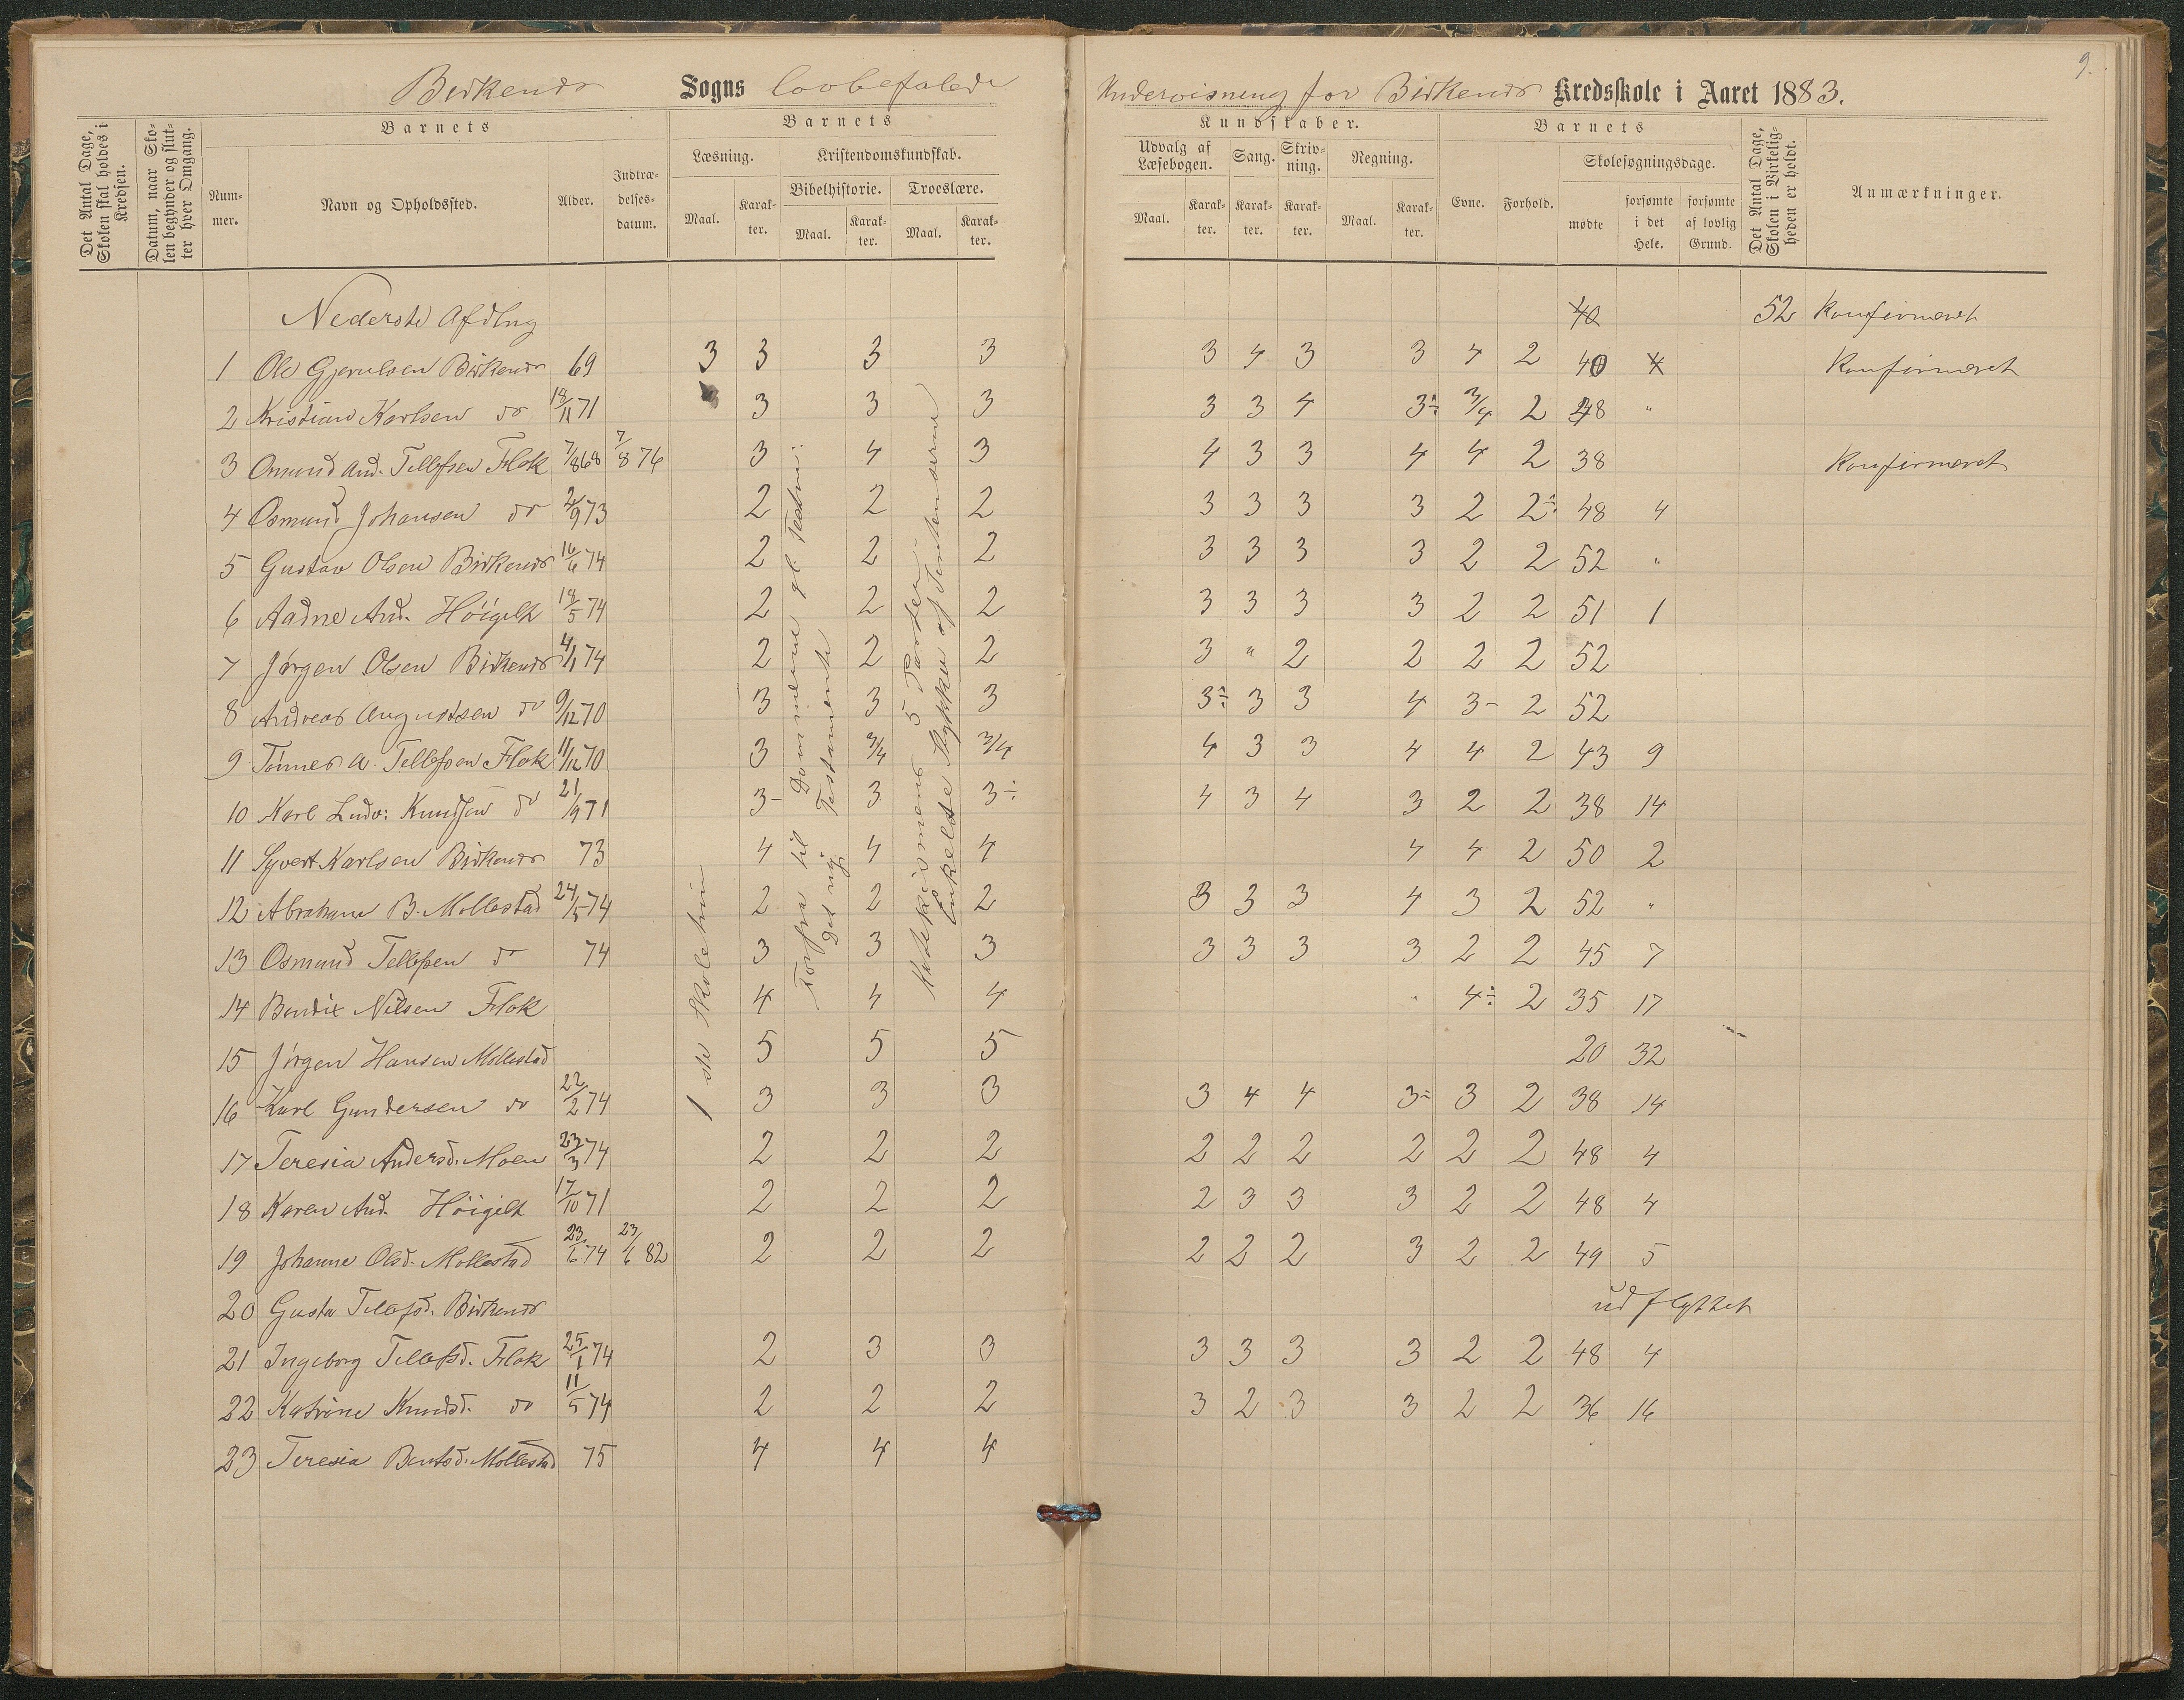 9.
Birkenes Sogns lovbefalede Undervisning for Birkenes Kredsskole i Aaret 1883.
Det Antal Dage, Skolen skal holdes i Kredsen.
Datum, naar Skolen begynder og slutter hver Omgang.
Barnets
Nummer.
Navn og Opholdssted.
Alder.
Indtrædelsesdatum.
Barnets
Læsning.
Maal.
Karakter.
Kristendomskundskab.
Bibelhistorie.
Maal.
Karakter.
Troeslære.
Maal.
Karakter.
Kundskaber.
Udvalg af Læsebogen.
Maal.
Karakter.
Sang.
Karakter.
Skrivning.
Karakter.
Regning.
Maal.
Karakter.
Barnets
Evne.
Forhold.
Skolesøgningsdage.
mødte
forsømte i det Hele.
forsømte af lovlig Grund.
Det Antal Dage, Skolen i Virkeligheden er holdt.
Anmærkninger.
Nederste Afdlng 40 52 Konfirmeret
1 Ole Gjerulsen Birkenes 69 3 3 3 3 3 4 3 3 4 2 40 4 Konfirmeret
2 Kristian Karlsen do 18/11 71 3 3 3 3 3 4 3÷ 3/4 2 48 "
3 Osmund And. Tellefsen Flak 7/8 68 7/8 76 3 4 3 4 3 3 4 4 2 38 Konfirmeret
4 Osmund Johansen do 2/9 73 2 2 2 3 3 3 3 2 2÷ 48 4
5 Gustav Olsen Birkenes 16/6 74 2 2 2 3 3 3 3 2 2 52 "
6 Aadne And. Höigilt 18/5 74 2 2 2 3 3 3 3 2 2 51 1
7 Jörgen Olsen Birkenes 4/1 74 2 2 2 3 " 2 2 2 2 52
8 Andreas Augustsen do 9/12 70 3 3 3 3÷ 3 3 4 3- 2 52
9 Tönnes A. Tellefsen Flak 11/12 70 3 3/4 3/4 4 3 3 4 4 2 43 9
10 Karl Ludv: Knudsen do 21/9 71 3- 3 3÷ 4 3 4 3 2 2 38 14
11 Syvert Karlsen Birkenes 73 4 4 4 4 4 2 50 2
12 Abraham B. Mollestad 24/5 74 2 2 2 3 3 3 4 3 2 52 "
13 Osmund Tellefsen do 74 3 3 3 3 3 3 3 2 2 45 7
14 Bendix Nilsen Flak 4 4 4 4÷ 2 35 17
15 Jörgen Hansen Mollestad 5 5 5 20 32
16 Karl Gundersen do 22/2 74 3 3 3 3 4 4 3÷ 3 2 38 14
17 Teresia Andersd. Moen 23/3 74 2 2 2 2 2 2 2 2 2 48 4
18 Karen And. Höigilt 17/10 71 2 2 2 2 3 3 3 2 2 48 4
19 Johanne Olsd. Mollestad 23/6 74 23/6 82 2 2 2 2 2 2 3 2 2 49 5
20 Gusta Tellefsd. Birkenes udflyttet
21 Ingeborg Tellefsd. Flak 25/1 74 2 3 3 3 3 3 3 2 2 48 4
22 Katrine Knudsd. do 11/5 74 2 2 2 3 2 3 3 2 2 36 16
23 Teresia Bentsd. Mollestad 75 4 4 4
1 ste Skoletrin
Forfra til Dommerne gl. Testm:
Det nye Testamente
Katekismens 5 Parter
Enkelte Stykker af